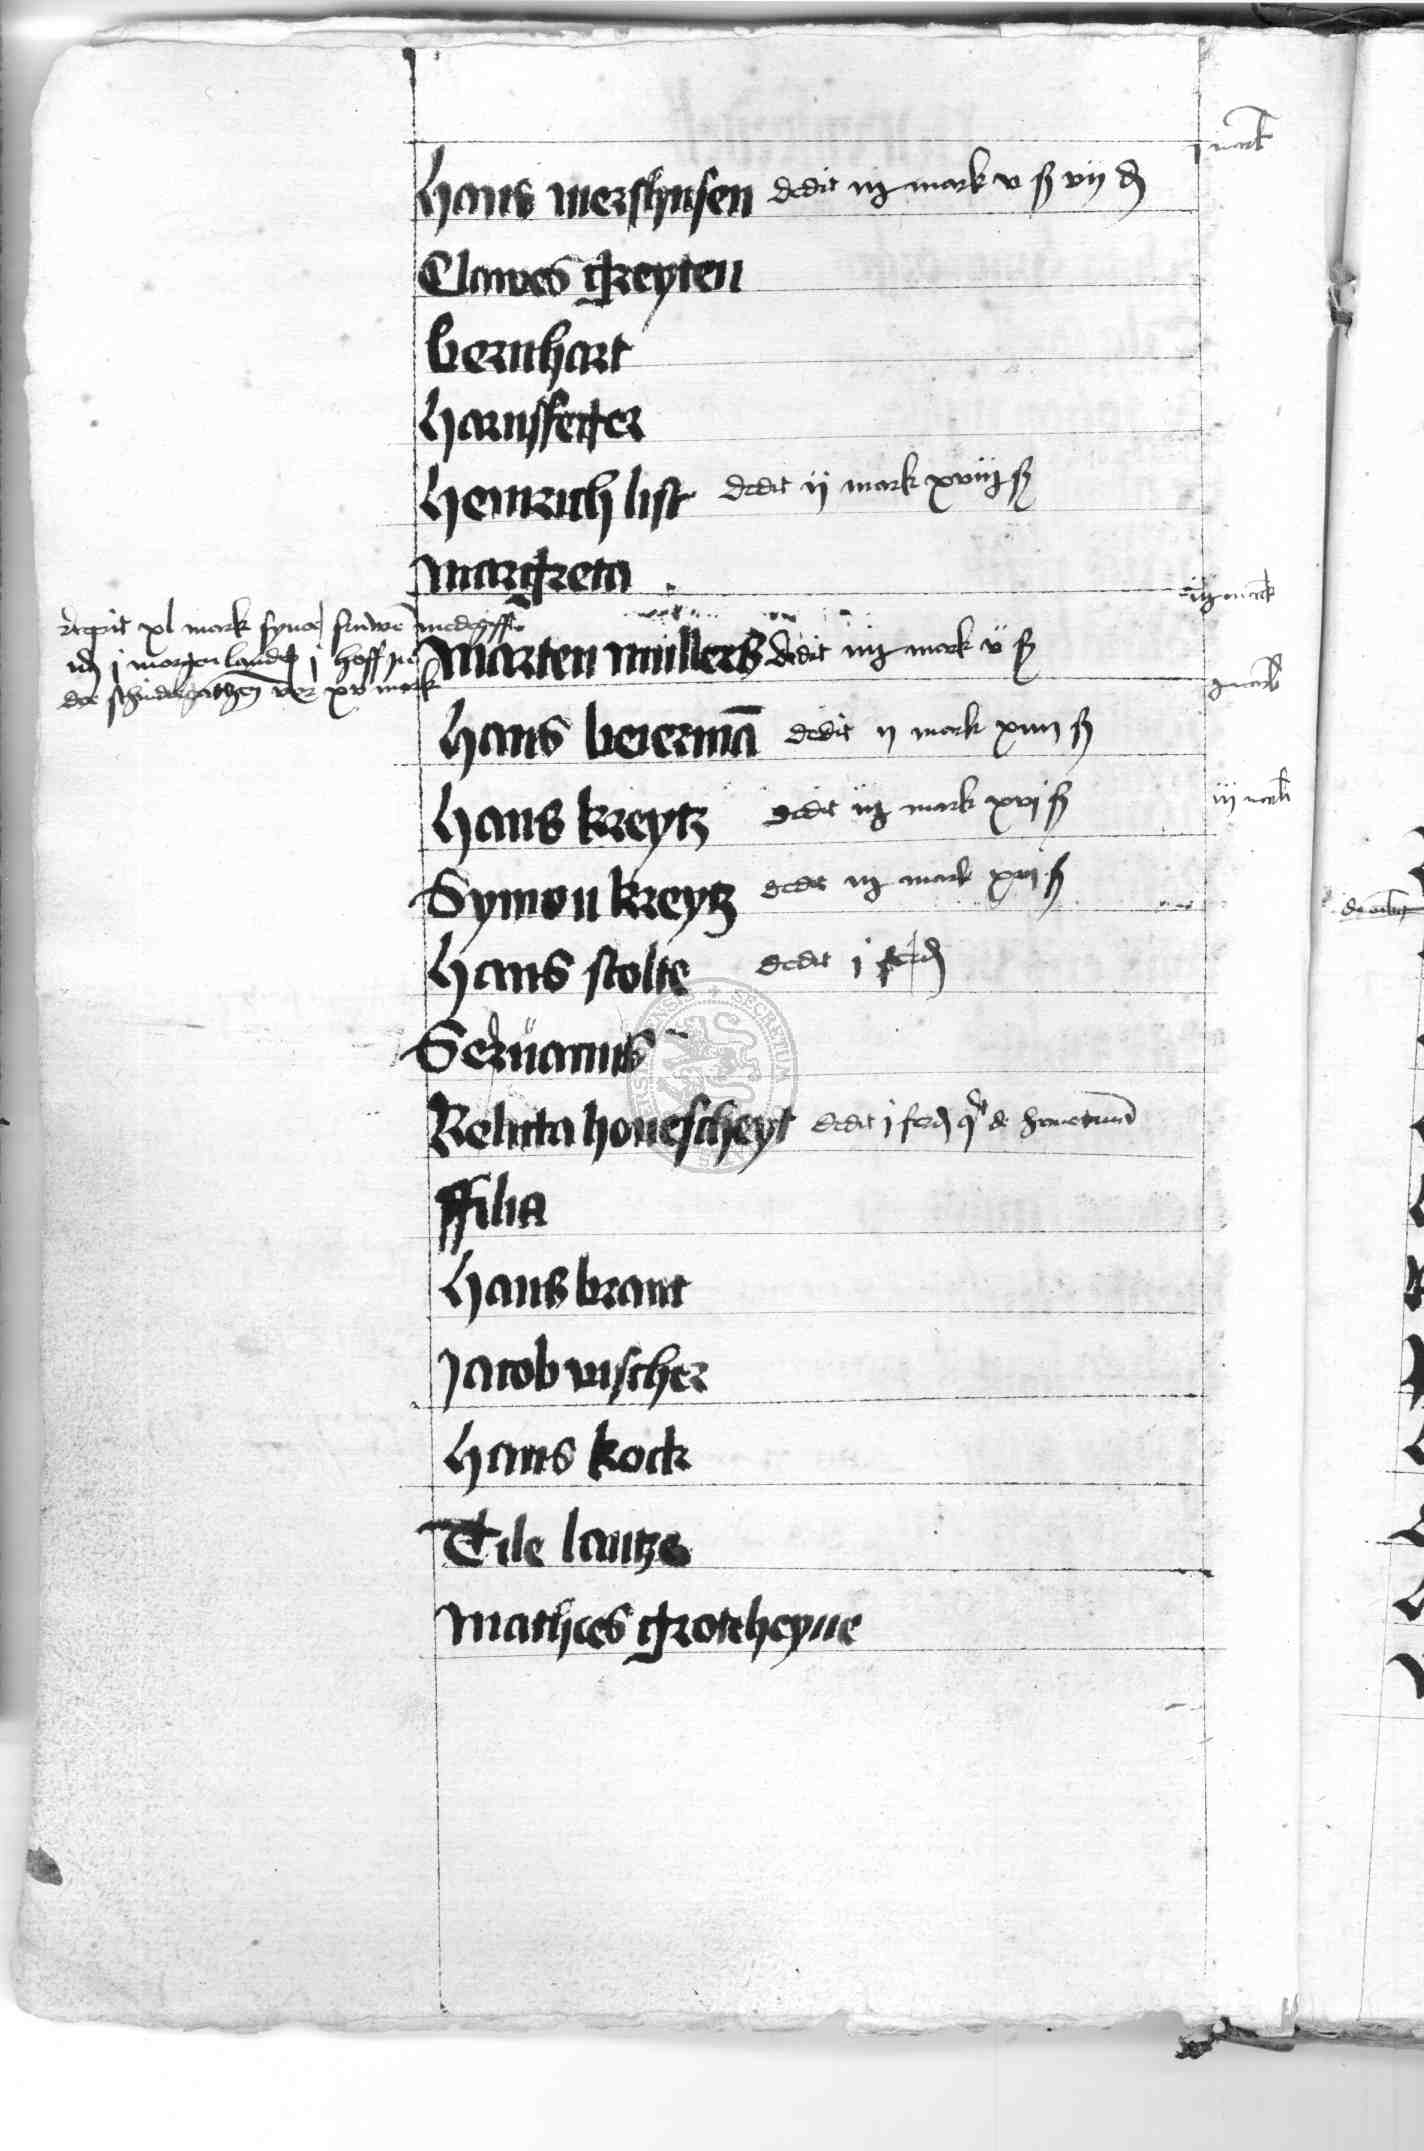 j mark
Hans mershusen dedit iij mark v ß vij ₰
Clawes greyten
Bernhart
Harnsfeger
Heinrich list dedit ij mark xviij ß
Margreta
iij mark
recepit xl mark syner fruwen medegifft
j morgen landes j hoff
der vor xv mark
Marten mullers dedit iiij mark v ß
j mark
Hans beierman̄ dedit ij mark xiiij ß
Hans kreytz dedit iij mark xvj ß
iij mark
Symon kreytz dedit iij mark xvj ß
Hans stolte dedit j ferd
Seruacius
Relicta houescheyt dedit j ferd de
ffilia
Hans brant
Jacob vischer
Hans kock
Tile lantze
Mathees groteheyne